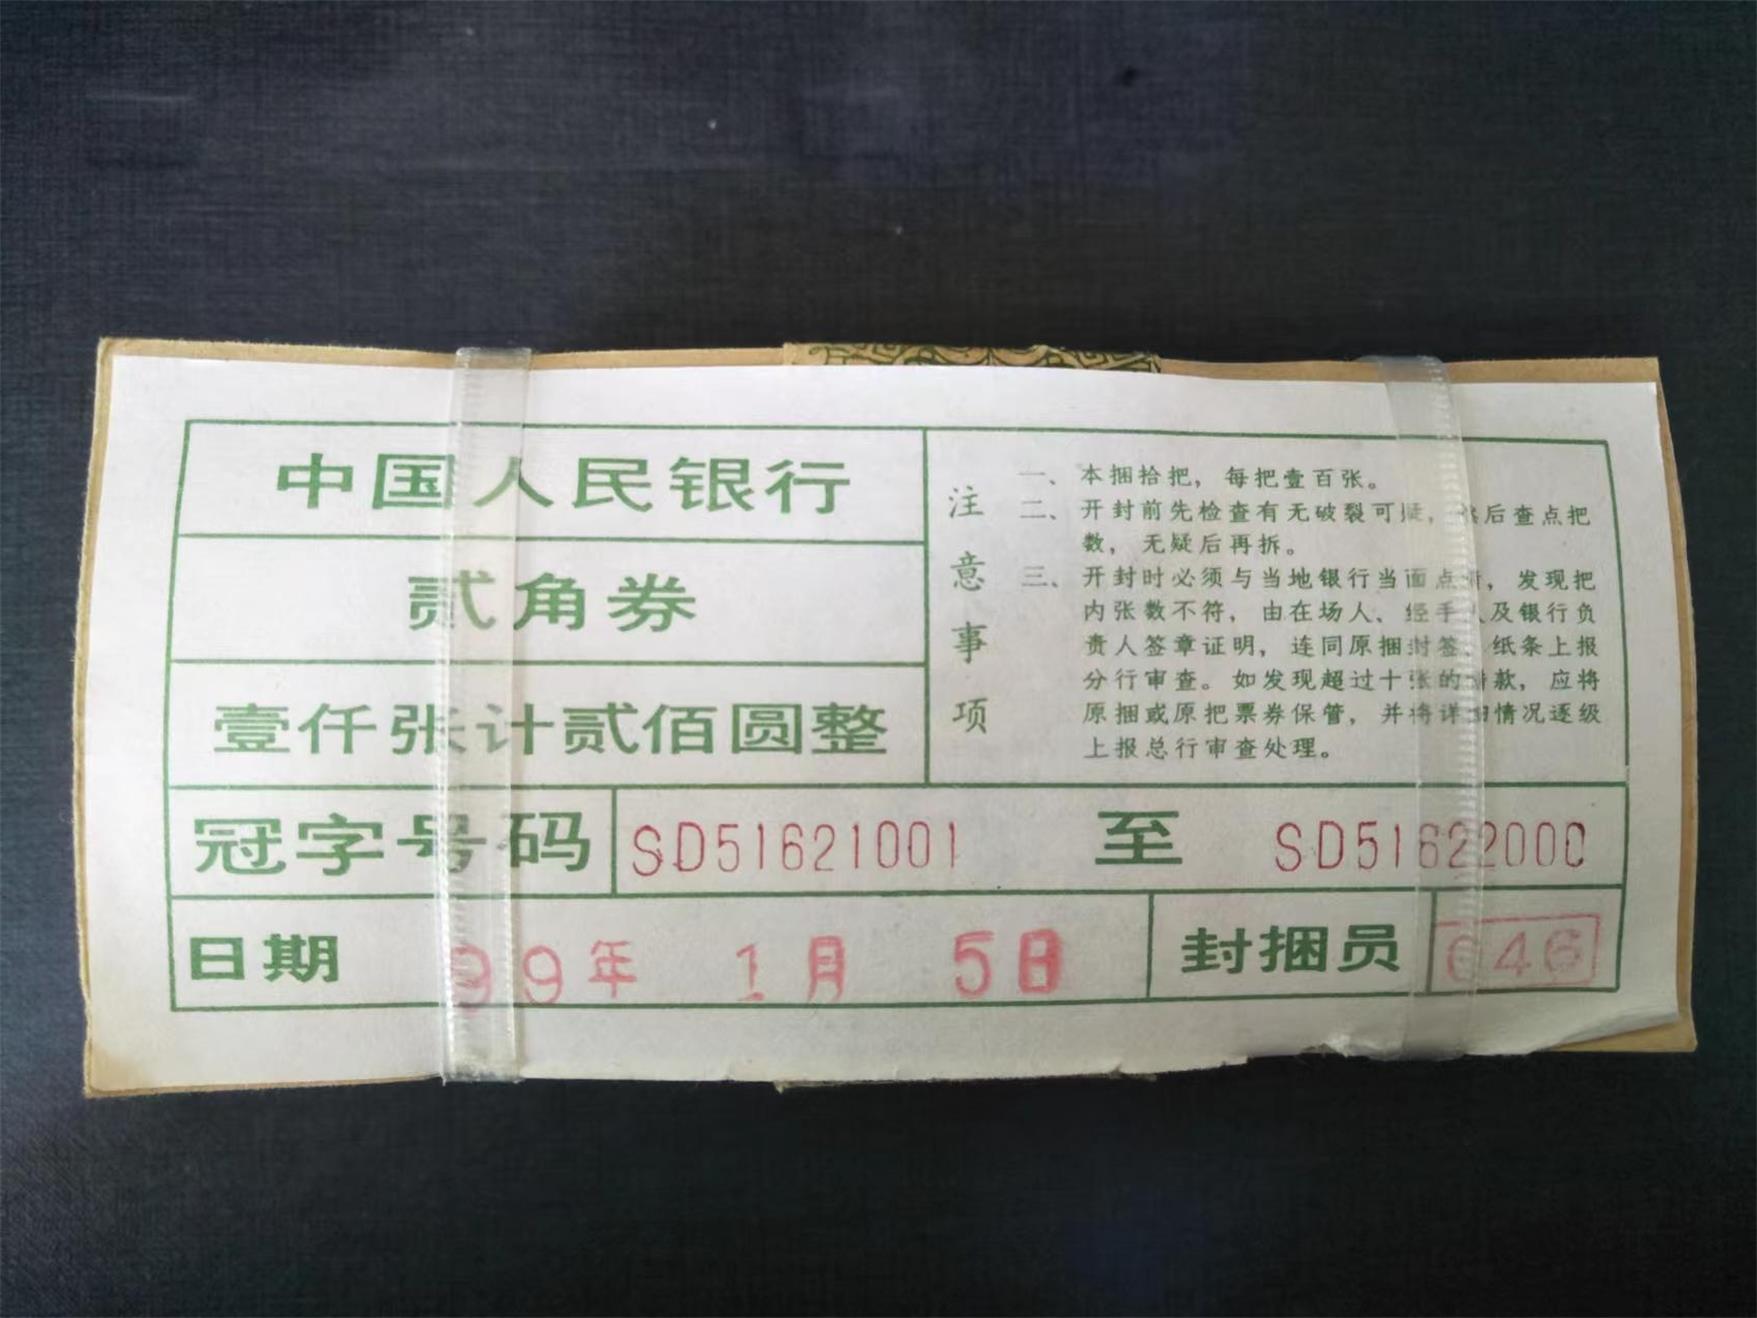 中国人民银行
贰角券
壹仟张计贰佰圆整
注意事项
一、本捆拾把，每把壹百张。
二、开封前先检查有无破裂可疑，然后查点把
数，无疑后再拆。
三、开封时必须与当地银行当面点清，发现把
内张数不符，由在场人、经手人及银行负
责人签章证明，连同原捆封签、纸条上报
分行审查。如发现超过十张的错款，应将
原捆或原把票券保管，并将详细情况逐级
上报总行审查处理。
冠字号码 SD51621001 至 SD51622000
日期 99年 1月 5日 封捆员 646